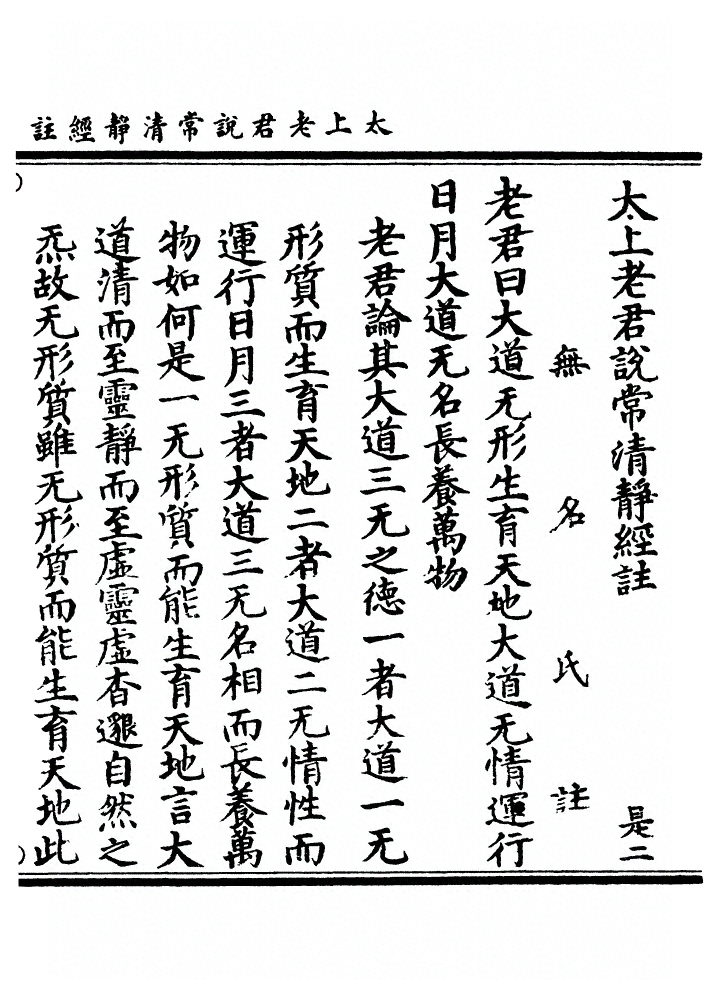 太上老君說常清靜經註
太上老君說常清靜經註 是二
無名氏註
老君曰大道无形生育天地大道无情運行
日月大道无名長養萬物
老君論其大道三无之德一者大道一无
形質而生育天地二者大道二无情性而
運行日月三者大道三无名相而長養萬
物如何是一无形質而能生育天地言大
道清而至靈靜而至虛靈虛杳邈自然之
炁故无形質雖无形質而能生育天地此